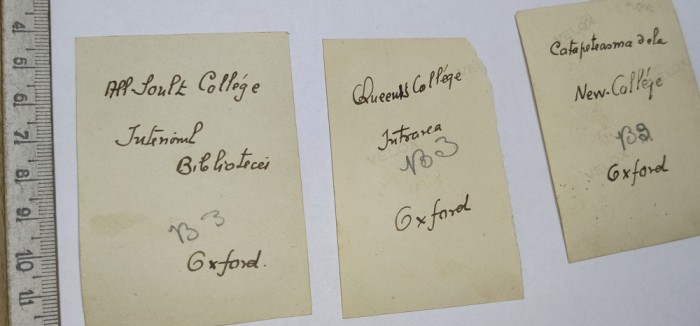 All Soult Collége
Interiorul
Bibliotecei
B 3
Oxford.
Queen's Collége
Intrarea
B 3
Oxford
Catapeteasma dela
New-Collége
B2
Oxford
4
5
6
7
8
9
10
11